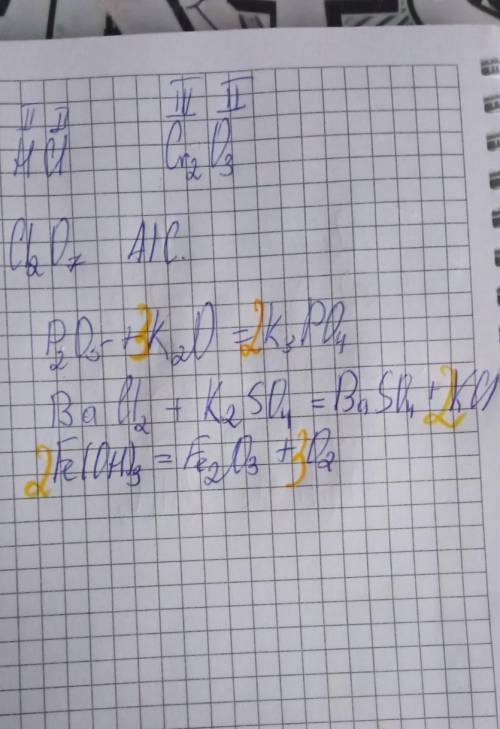 II II IV II
HCl Cr₂O₃
Cl₂O₇ AlC
P₂O₅ + 3K₂O = 2K₃PO₄
BaCl₂ + K₂SO₄ = BaSO₄ + 2KCl
2Fe(OH)₃ = Fe₂O₃ + 3O₂